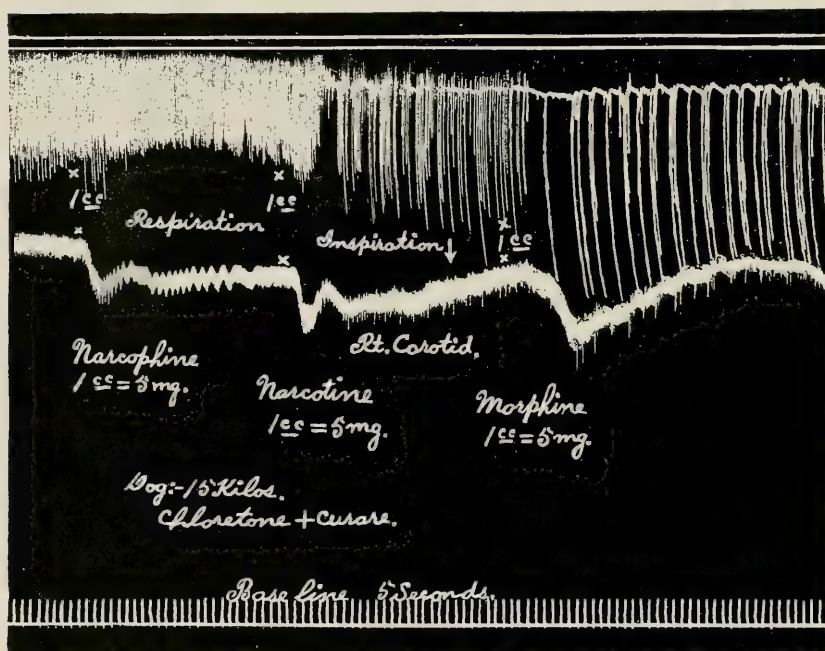 x x
1 cc 1 cc
Respiration
x x
Inspiration ↓
x
1 cc
x
Rt. Carotid.
Narcophine
1 cc = 5 mg.
Narcotine
1 cc = 5 mg.
Morphine
1 cc = 5 mg.
Dog:- 15 Kilos.
Chloretone + Curare.
Base line 5 Seconds.